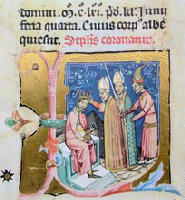 domini. oↄ. c. lxii. pͦ. kl. Junii
feria quarta. Cuius corpꝰ albe
quiescit. Steph̄s coronatur.